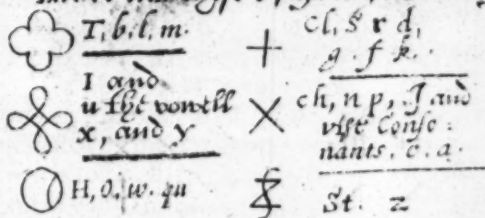 T, b, l, m.
I and
u the vowell
x, and y
H, O, w. qu
cl, S r d,
g. f k.
ch, n p, J and
v the Conso:
nants. c. a.
St. z